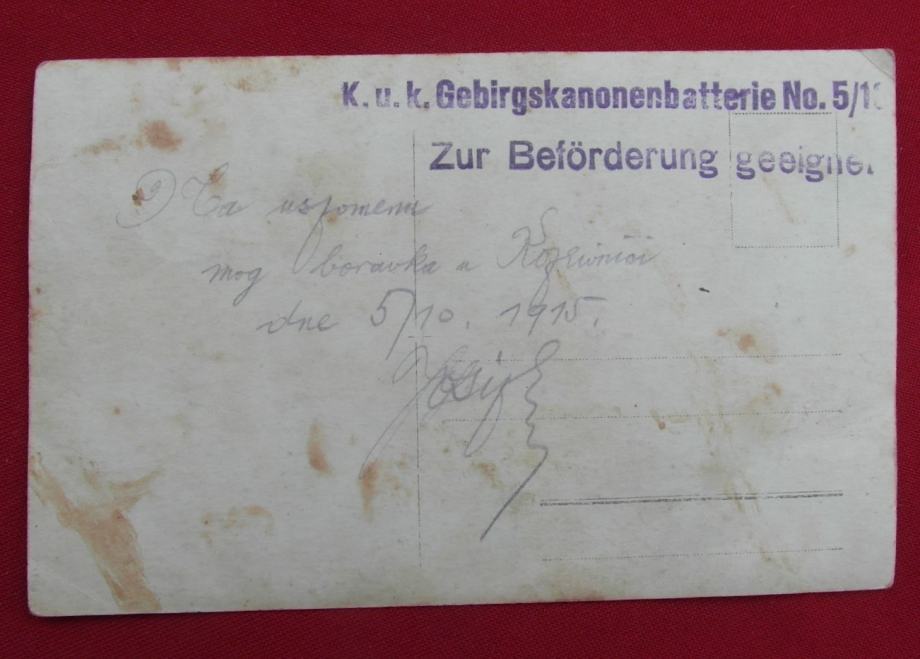 K. u. k. Gebirgskanonenbatterie No. 5/1
Zur Beförderung geeignet
Za uspomenu
mog boravka u
dne 5/10. 1915.
Josip